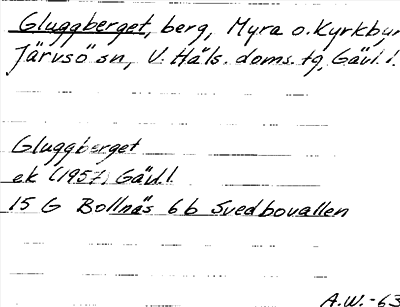 Gluggberget, berg, Myra o. Kyrkbyn
Järvsö sn, V. Häls. doms. tg, Gävl. l.
Gluggberget
ek (1957) Gävl. l.
15 G Bollnäs 6b Svedbovallen
A.W. -63